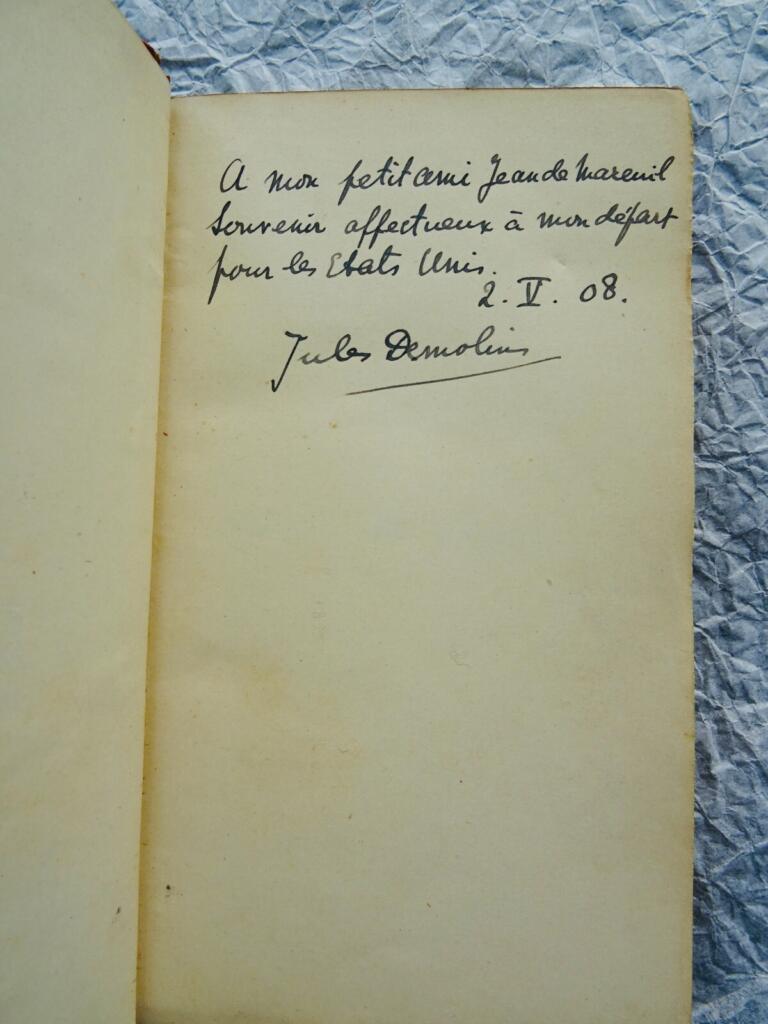 A mon petit ami Jean de Mareuil
Souvenir affectueux à mon départ
pour les Etats Unis.
2. V. 08.
Jules Demolins